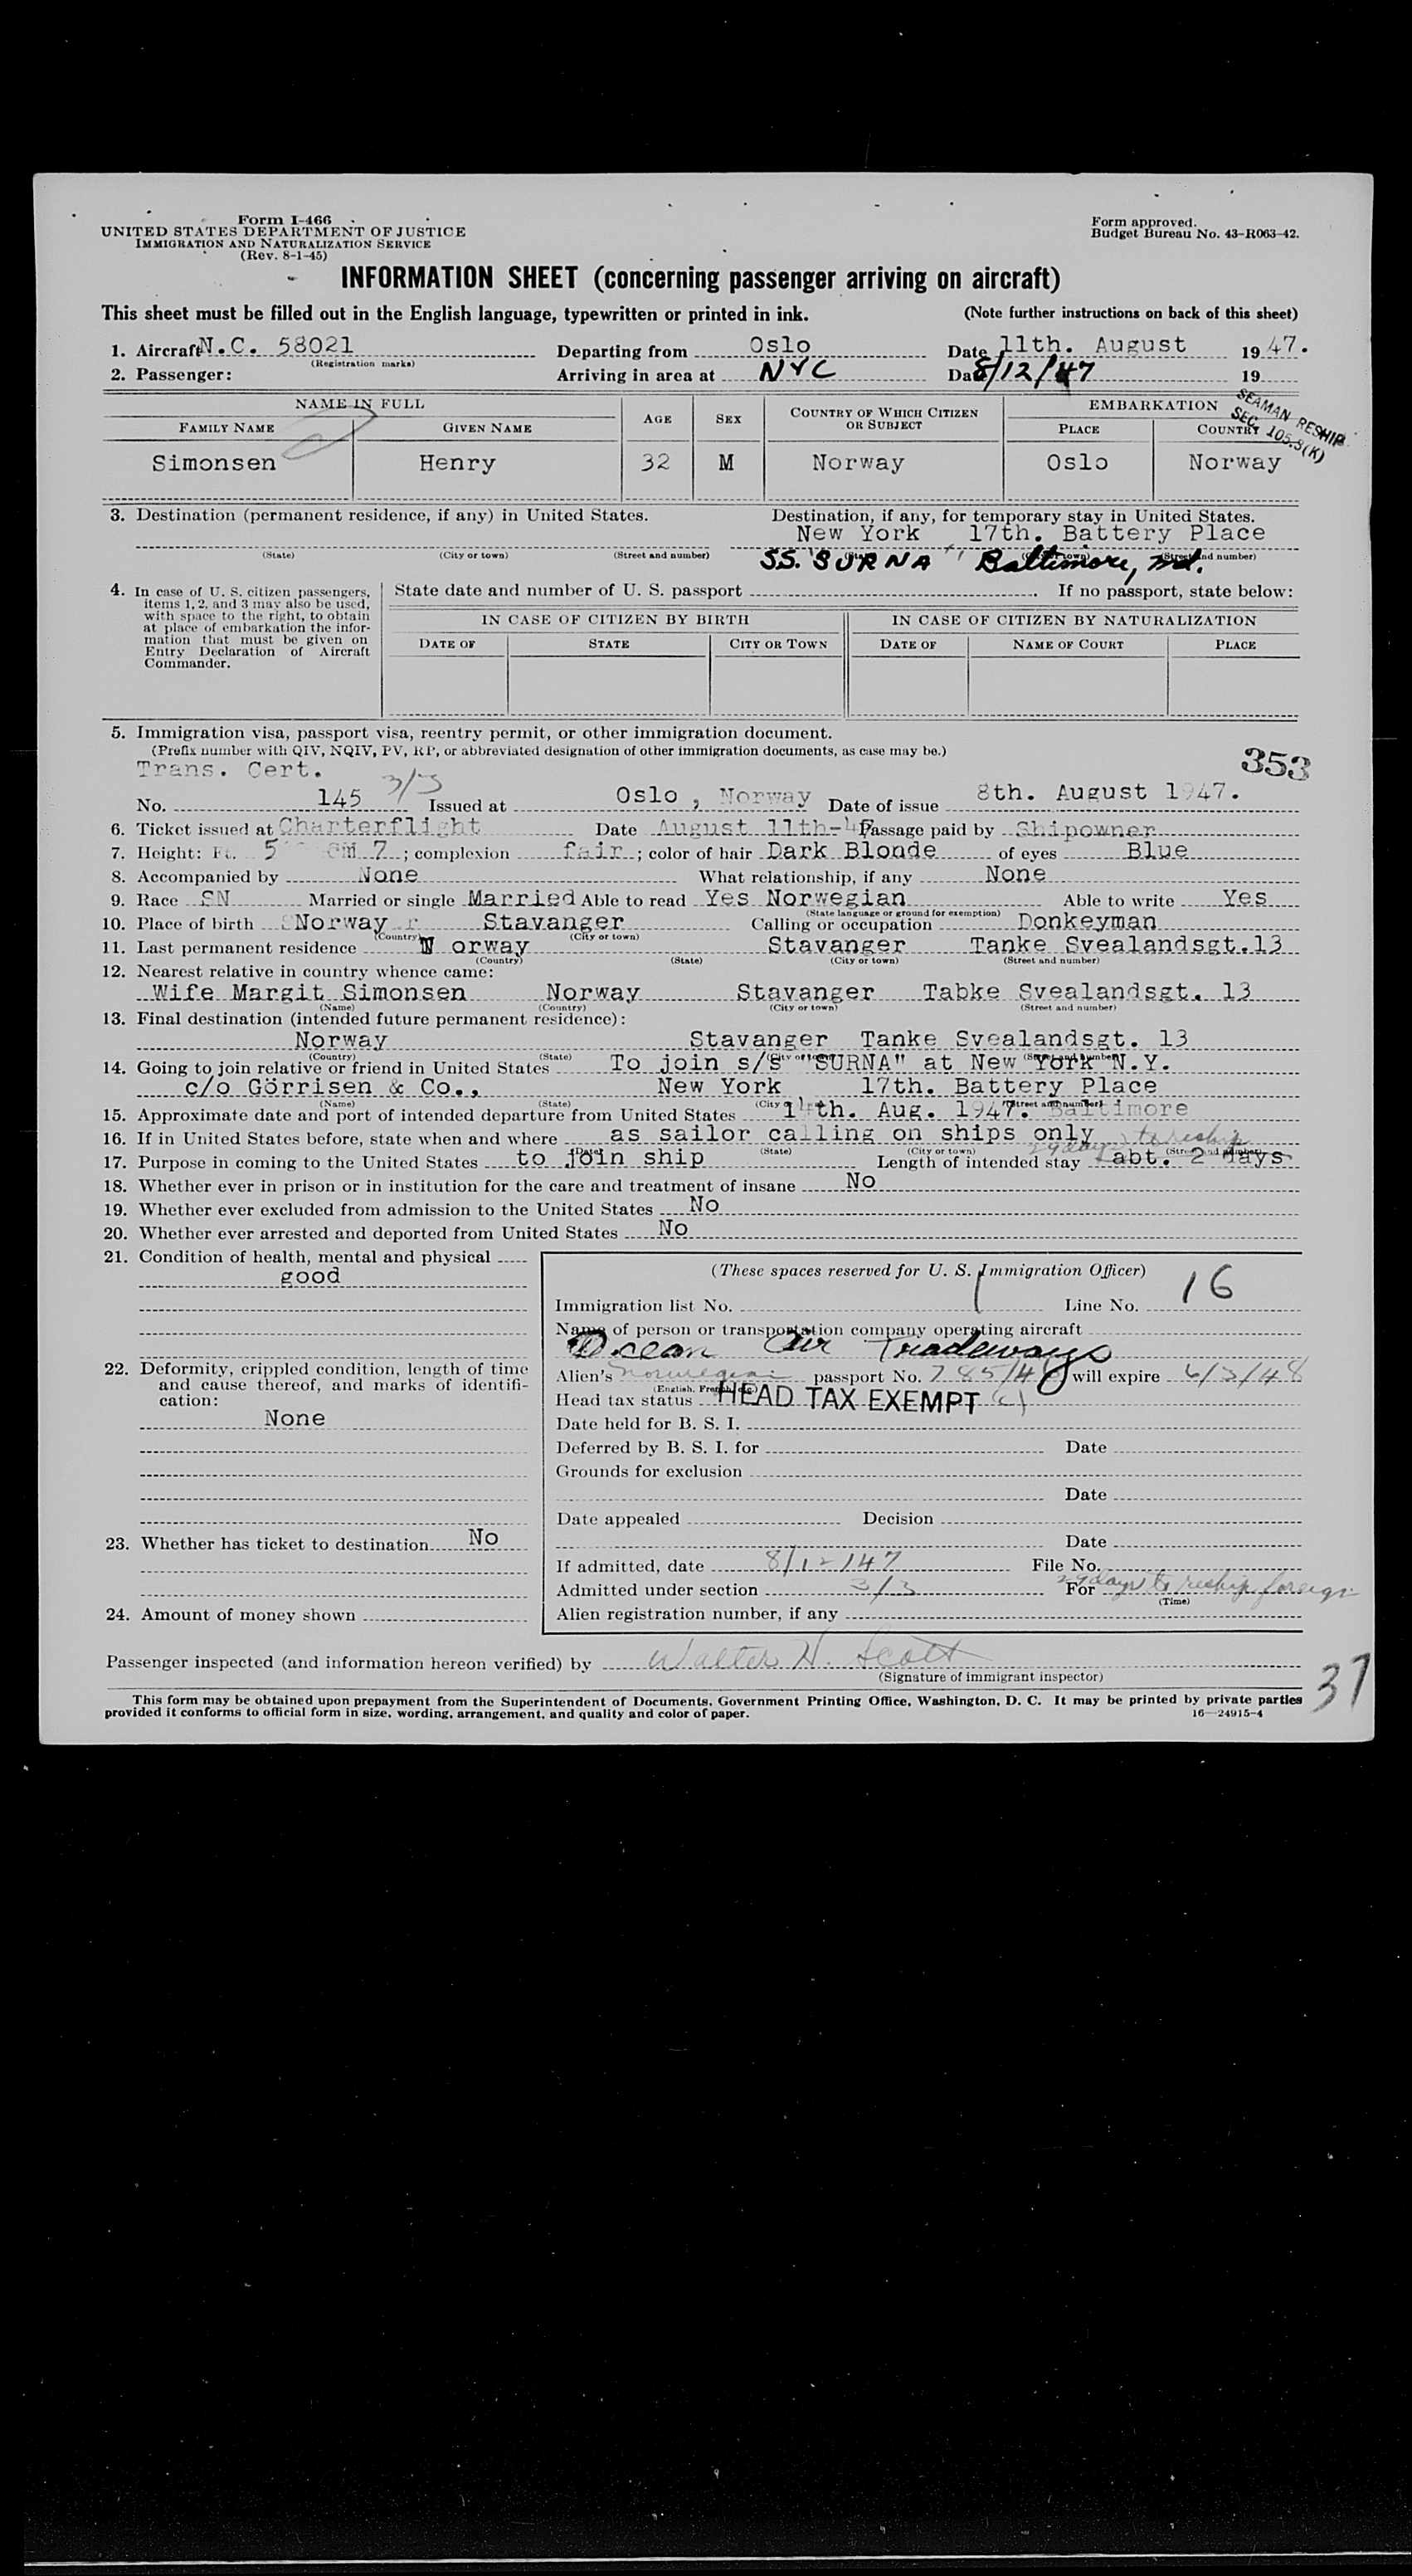 Form I-466
UNITED STATES DEPARTMENT OF JUSTICE
IMMIGRATION AND NATURALIZATION SERVICE
(Rev. 8-1-45)
Form approved.
Budget Bureau No. 43-R063-42.
INFORMATION SHEET (concerning passenger arriving on aircraft)
This sheet must be filled out in the English language, typewritten or printed in ink. (Note further instructions on back of this sheet)
1. Aircraft N.C. 58021 Departing from Oslo Date 11th. August 1947.
(Registration marks)
2. Passenger: Arriving in area at NYC Da 8/12/47 19
NAME IN FULL AGE SEX COUNTRY OF WHICH CITIZEN OR SUBJECT EMBARKATION
SEAMAN RESHIP
SEC. 105.3(K)
FAMILY NAME GIVEN NAME PLACE COUNTRY
Simonsen Henry 32 M Norway Oslo Norway
3. Destination (permanent residence, if any) in United States. Destination, if any, for temporary stay in United States.
New York 17th. Battery Place
(State) (City or town) (Street and number) (State) (City or town) (Street and number)
SS. "SURNA" Baltimore, Md.
4. In case of U. S. citizen passengers, items 1, 2, and 3 may also be used, with space to the right, to obtain at place of embarkation the information that must be given on Entry Declaration of Aircraft Commander.
State date and number of U. S. passport . If no passport, state below:
IN CASE OF CITIZEN BY BIRTH IN CASE OF CITIZEN BY NATURALIZATION
DATE OF STATE CITY OR TOWN DATE OF NAME OF COURT PLACE
5. Immigration visa, passport visa, reentry permit, or other immigration document.
(Prefix number with QIV, NQIV, PV, RP, or abbreviated designation of other immigration documents, as case may be.)
353
Trans. Cert. 3/3
No. 145 Issued at Oslo, Norway Date of issue 8th. August 1947.
6. Ticket issued at Charterflight Date August 11th-47 Passage paid by Shipowner
7. Height: Ft. 5 7 ; complexion fair ; color of hair Dark Blonde of eyes Blue
8. Accompanied by None What relationship, if any None
9. Race SN Married or single Married Able to read Yes Norwegian Able to write Yes
(State language or ground for exemption)
10. Place of birth Norway Stavanger Calling or occupation Donkeyman
(Country) (City or town)
11. Last permanent residence N orway Stavanger Tanke Svealandsgt.13
(Country) (State) (City or town) (Street and number)
12. Nearest relative in country whence came:
Wife Margit Simonsen Norway Stavanger Tabke Svealandsgt. 13
(Name) (Country) (City or town) (Street and number)
13. Final destination (intended future permanent residence):
Norway Stavanger Tanke Svealandsgt. 13
(Country) (State) (City or town) (Street and number)
14. Going to join relative or friend in United States To join s/s "SURNA" at New York N.Y.
c/o Görrisen & Co., New York 17th. Battery Place
(Name) (State) (City or (Street and number)
15. Approximate date and port of intended departure from United States 14th. Aug. 1947. Baltimore
16. If in United States before, state when and where as sailor calling on ships only
(Date) (State) (City or town) (Street and number)
29 days to reship
17. Purpose in coming to the United States to join ship Length of intended stay abt. 2 days
18. Whether ever in prison or in institution for the care and treatment of insane No
19. Whether ever excluded from admission to the United States No
20. Whether ever arrested and deported from United States No
21. Condition of health, mental and physical
good
22. Deformity, crippled condition, length of time and cause thereof, and marks of identification:
None
23. Whether has ticket to destination No
24. Amount of money shown
(These spaces reserved for U. S. Immigration Officer)
Immigration list No. 1 Line No. 16
Name of person or transportation company operating aircraft
Ocean Air Tradeways
Alien's Norwegian passport No. 785/46 will expire 6/3/48
(English, French, etc.)
Head tax status HEAD TAX EXEMPT
Date held for B. S. I.
Deferred by B. S. I. for Date
Grounds for exclusion
Date
Date appealed Decision
Date
If admitted, date 8/12/47 File No.
Admitted under section 3/3 For 29 days to reship foreign
(Time)
Alien registration number, if any
Passenger inspected (and information hereon verified) by Walter H. Scott
(Signature of immigrant inspector)
37
This form may be obtained upon prepayment from the Superintendent of Documents, Government Printing Office, Washington, D. C. It may be printed by private parties
provided it conforms to official form in size, wording, arrangement, and quality and color of paper. 16—24915-4